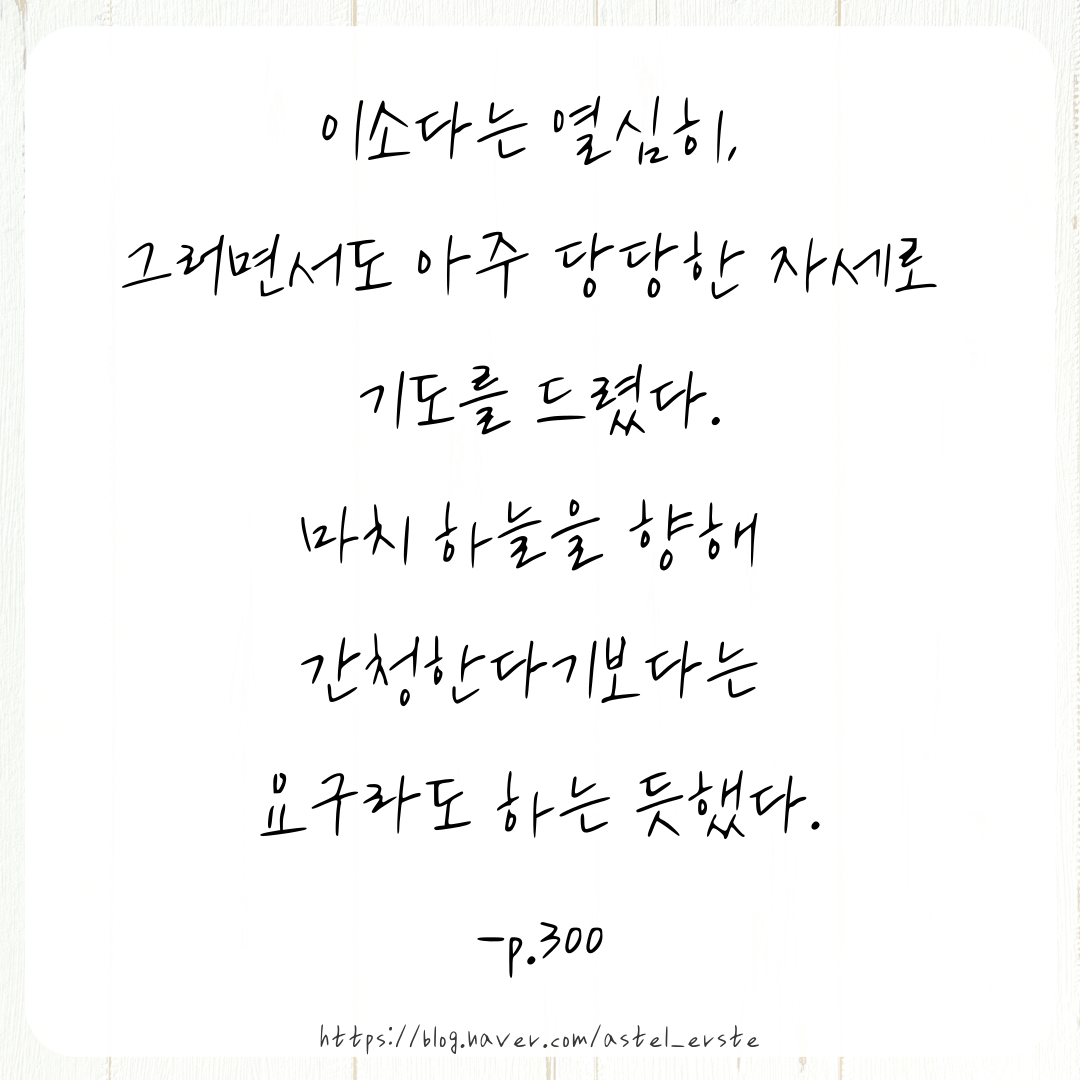 이소다는 열심히,
그러면서도 아주 당당한 자세로
기도를 드렸다.
마치 하늘을 향해
간청한다기보다는
요구라도 하는 듯했다.
-p.300
https://blog.naver.com/astel_erste